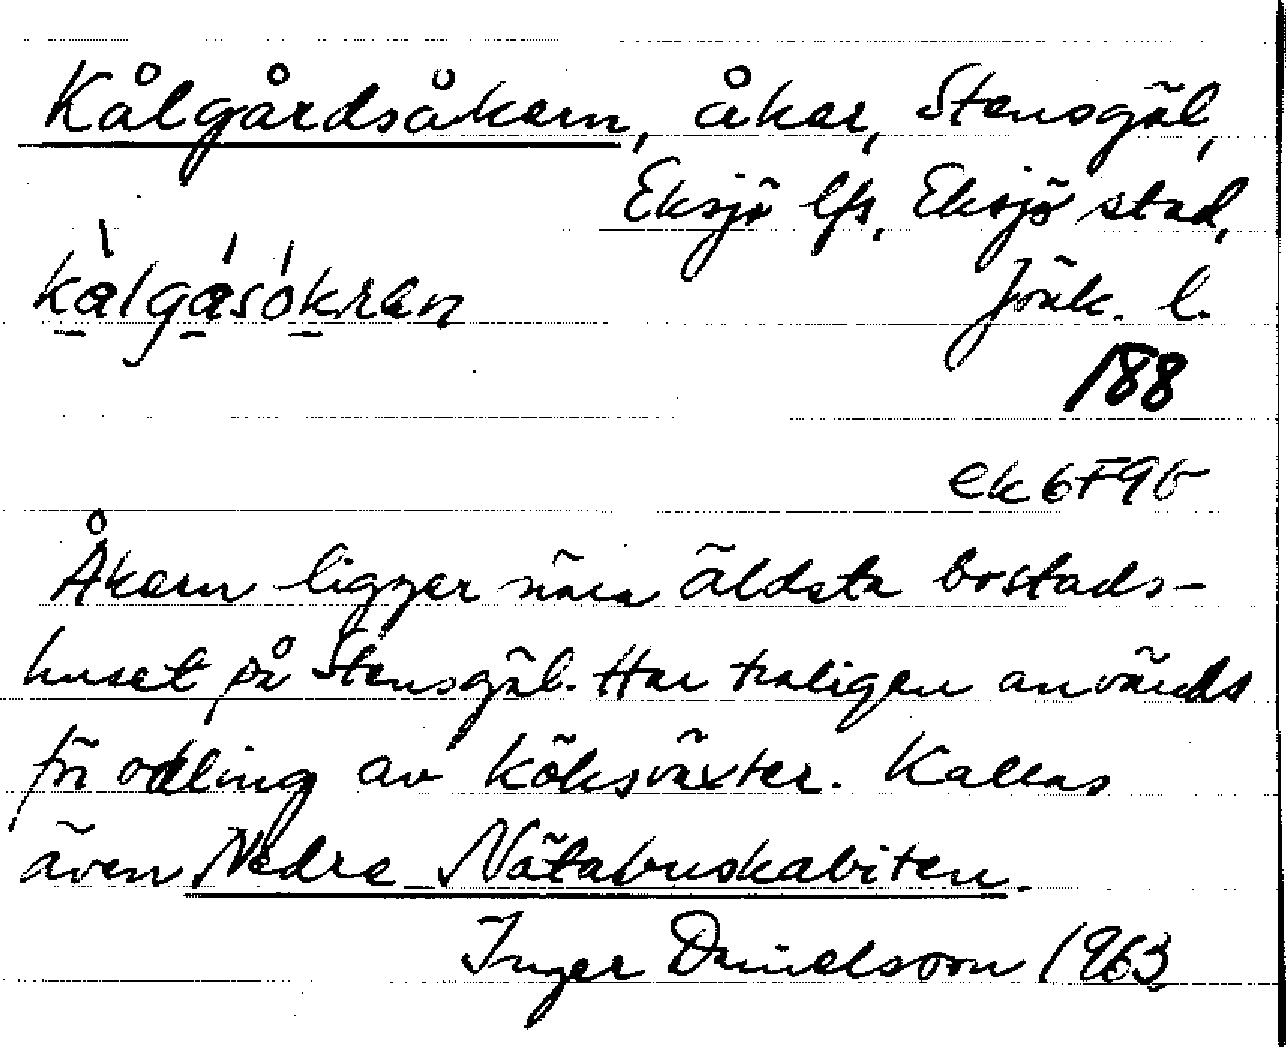 Kålgårdsåkern, åker, Stensgäl,
Eksjö lfs, Eksjö stad,
kàlgásókren
Jönk. l.
188
ek 6F9b
Åkern ligger nära äldsta bostads-
huset på Stensgäl. Har troligen använts
för odling av köksväxter. Kallas
även Nedre Nötabuskabiten.
Inger Danielsson 1963